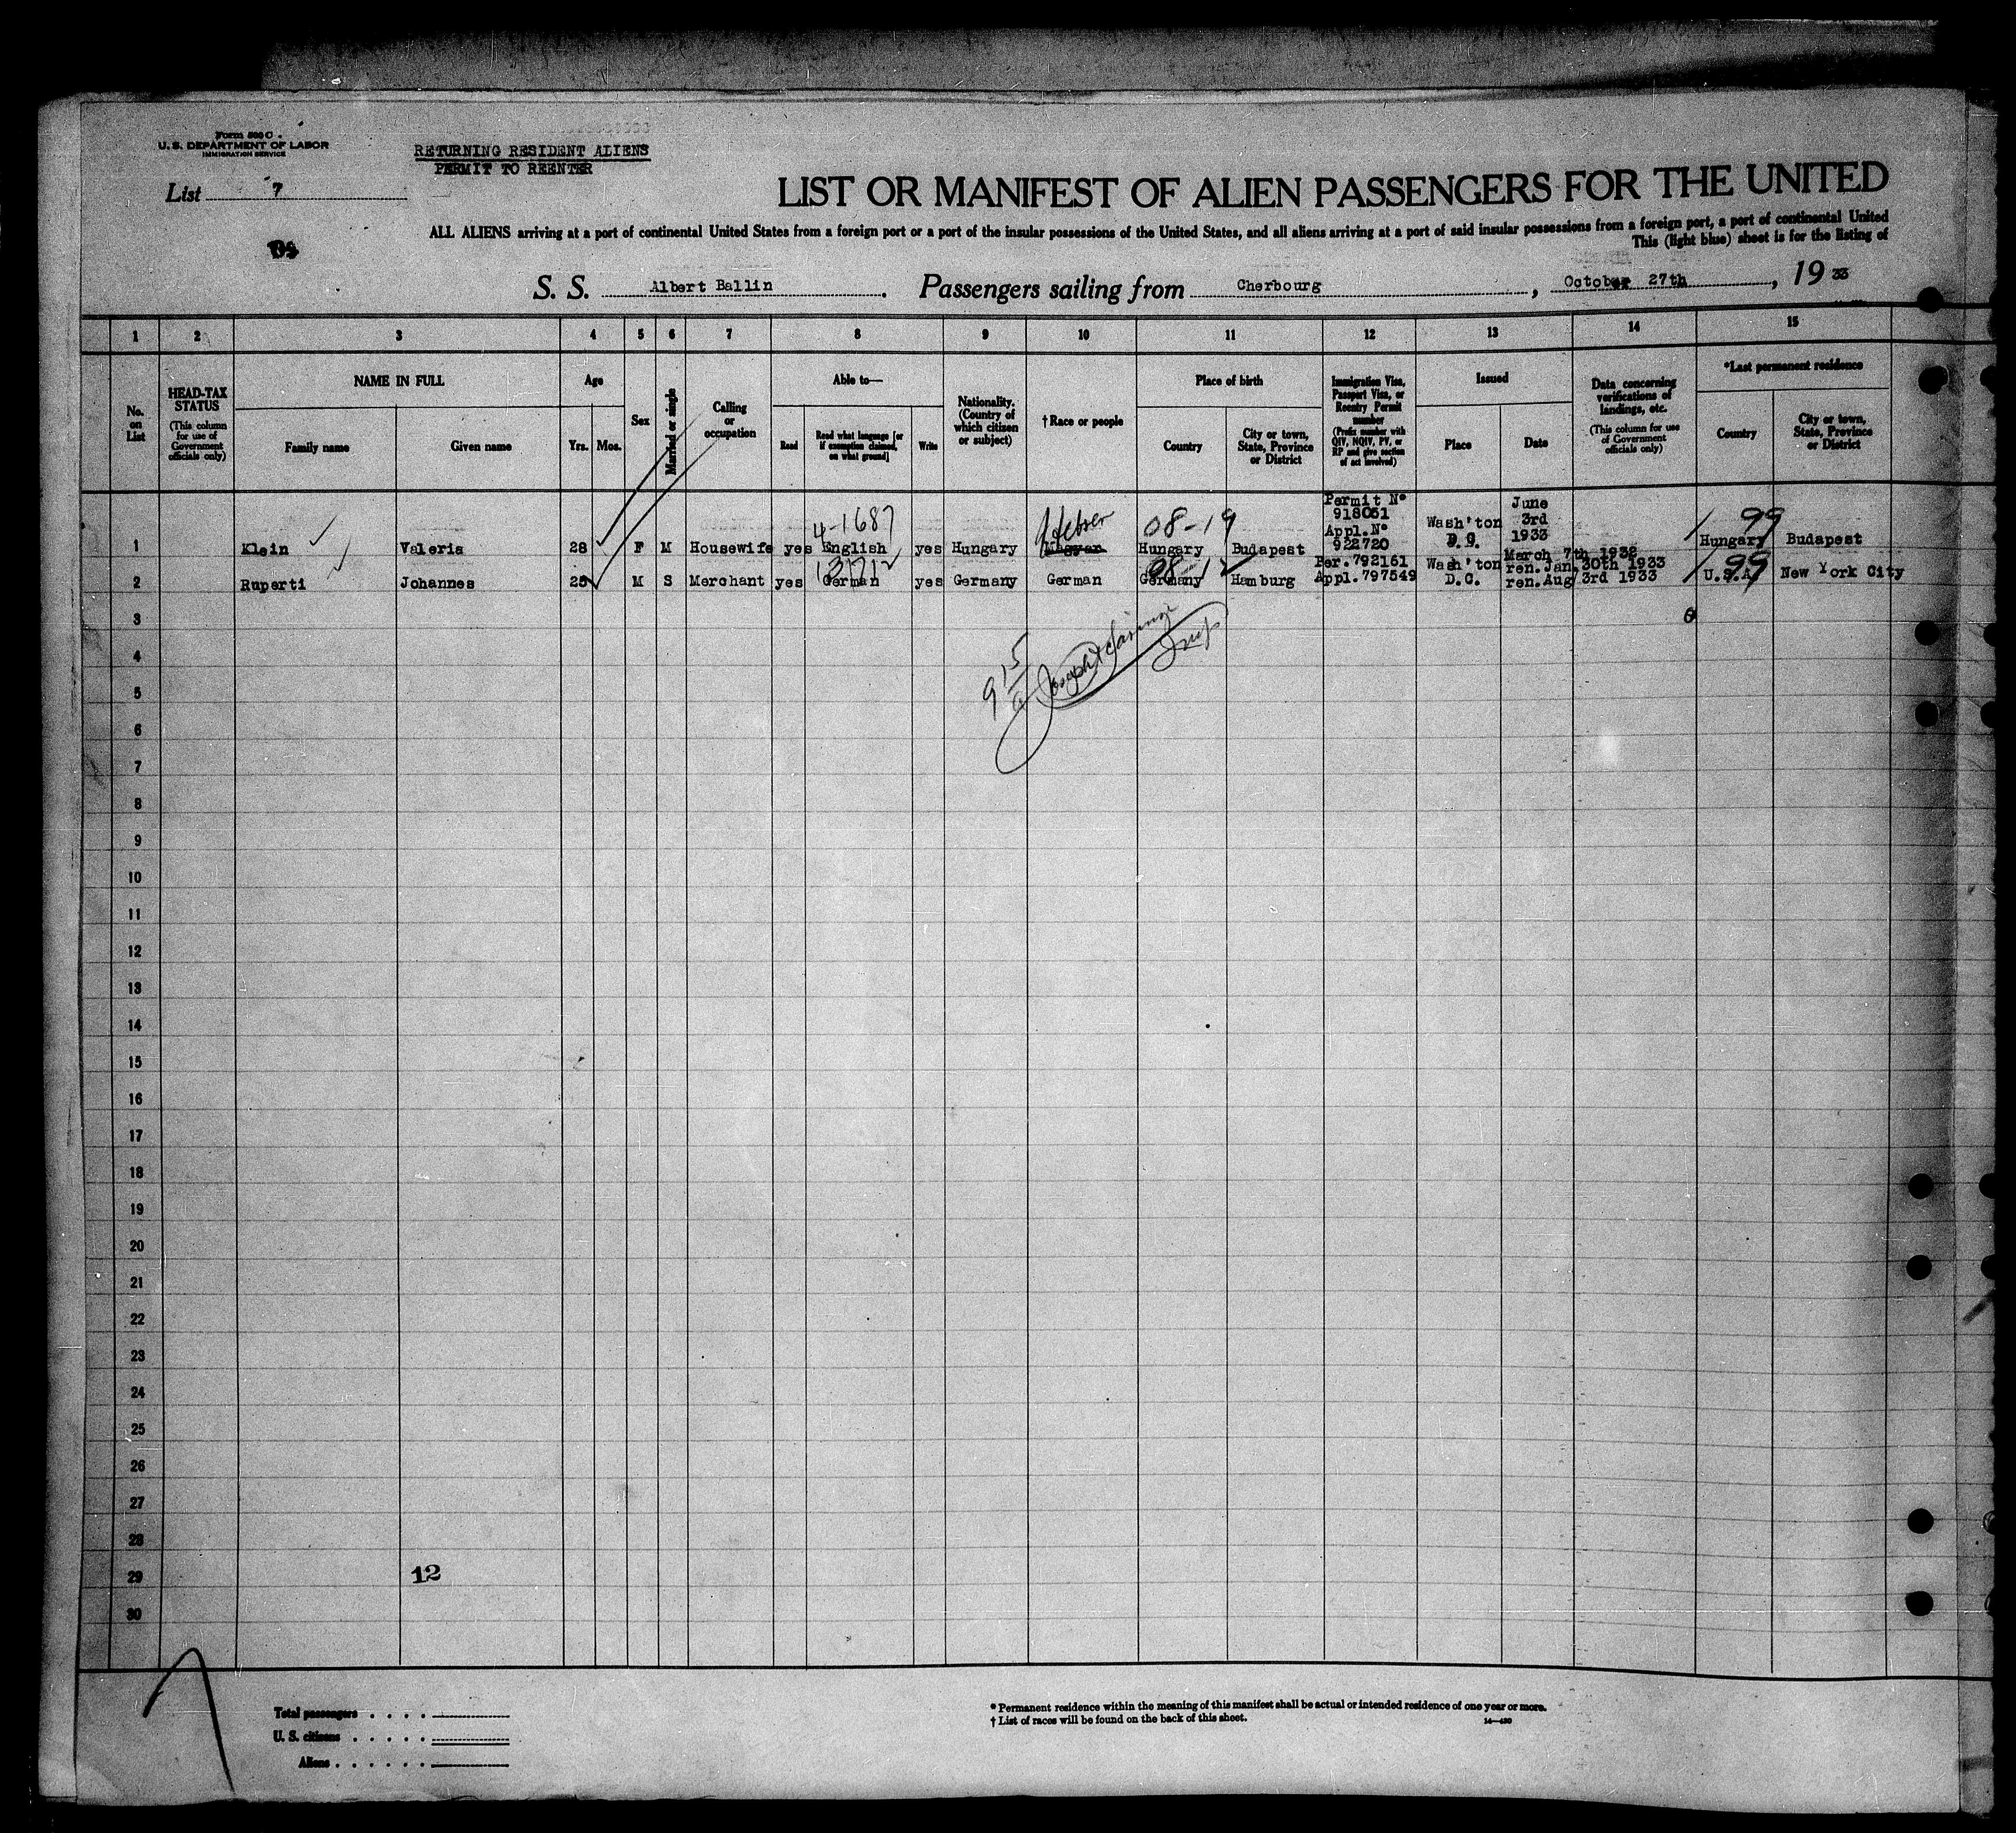 Form 500 C
U. S. DEPARTMENT OF LABOR
IMMIGRATION SERVICE
RETURNING RESIDENT ALIENS
PERMIT TO REENTER
List 7
LIST OR MANIFEST OF ALIEN PASSENGERS FOR THE UNITED
ALL ALIENS arriving at a port of continental United States from a foreign port or a port of the insular possessions of the United States, and all aliens arriving at a port of said insular possessions from a foreign port, a port of continental United
This (light blue) sheet is for the listing of
S. S. Albert Ballin. Passengers sailing from Cherbourg, October 27th, 19 33
1 2 3 4 5 6 7 8 9 10 11 12 13 14 15
No. on List
HEAD-TAX STATUS (This column for use of Government officials only)
NAME IN FULL
Family name
Given name
Age
Yrs. Mos.
Sex
Married or single
Calling or occupation
Able to—
Read
Read what language [or if exemption claimed, on what ground]
Write
Nationality. (Country of which citizen or subject)
† Race or people
Place of birth
Country
City or town, State, Province or District
Immigration Visa, Passport Visa, or Reentry Permit number (Prefix number with QIV, NQIV, PV, or RP and give section of act involved)
Issued
Place
Date
Data concerning verifications of landings, etc. (This column for use of Government officials only)
*Last permanent residence
Country
City or town, State, Province or District
4-1687 Hebrew 08-19 99
1 Klein Valeria 28 F M Housewife yes English yes Hungary Magyar Hungary Budapest Permit No 918051 Appl.No 922720 Wash'ton D.C. June 3rd 1933 Hungary Budapest
2 Ruperti Johannes 25 M S Merchant yes German yes Germany German Germany Hamburg Per.792161 Appl.797549 Wash'ton D.C. March 7th 1932 ren.Jan.30th 1933 ren.Aug 3rd 1933 U.S.A. New York City
99
3
4
9 15
5
Insp
6
7
8
9
10
11
12
13
14
15
16
17
18
19
20
21
22
23
24
25
26
27
28
29 12
30
Total passengers
U. S. citizens
Aliens
* Permanent residence within the meaning of this manifest shall be actual or intended residence of one year or more.
† List of races will be found on the back of this sheet.
14—430